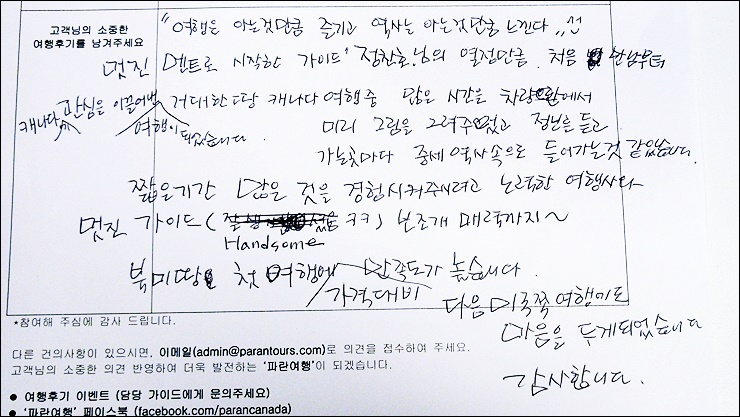 고객님의 소중한
여행후기를 남겨주세요
"여행은 아는것만큼 즐기고 역사는 아는것만큼 느낀다
멋진 멘트로 시작한 가이드' 님의 열정만큼. 처음 만남부터
캐나다 관심을 이끌어낸 여행이 되었습니다.
거대한 땅 캐나다 여행중 많은 시간을 차량 안에서
미리 그림을 그려주었고 정보를 듣고
가는곳마다 중세 역사속으로 들어가는것 같았습니다.
짧은기간 많은 것을 경험시켜주시려고 노력한 여행사와
멋진 가이드 ( ㅋㅋ) 보조개 매력까지~
Handsome
북미땅 첫 여행에 가격대비 만족도가 높습니다.
다음 미국쪽 여행에도
마음을 두게되었습니다
감사합니다.
*참여해 주심에 감사 드립니다.
다른 건의사항이 있으시면, 이메일(admin@parantours.com)로 의견을 접수하여 주세요.
고객님의 소중한 의견 반영하여 더욱 발전하는 '파란여행'이 되겠습니다.
● 여행후기 이벤트 (담당 가이드에게 문의주세요)
● '파란여행' 페이스북 (facebook.com/parancanada)